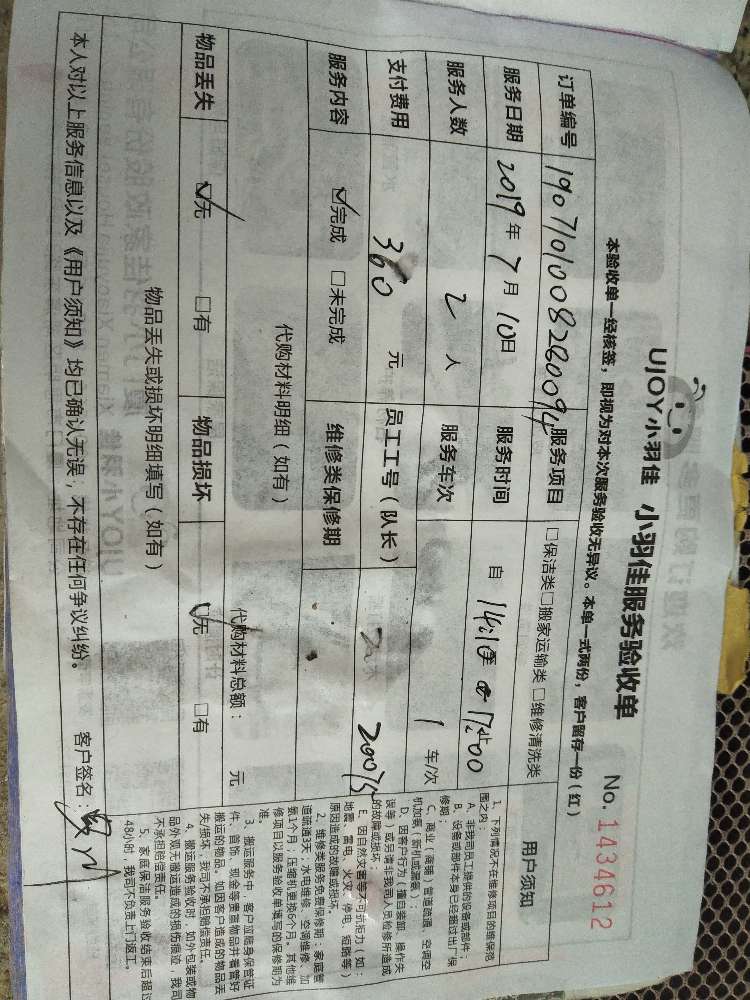 UJOY小羽佳 小羽佳服务验收单 No. 1434612
本验收单一经核签，即视为对本次服务验收无异议。本单一式两份，客户留存一份（红）
订单编号 190710100828009 服务项目 □保洁类□搬家运输类□维修清洗类
服务日期 2019年7月10日 服务时间 自
服务人数 2人 服务车次 1车/次
支付费用 360元 员工工号（队长）
服务内容 ☑完成 □未完成 维修类保修期
代购材料明细（如有） 代购材料总额： 元
物品丢失 ☑无 □有 物品损坏 ☑无 □有
物品丢失或损坏明细填写（如有）
本人对以上服务信息以及《用户须知》均已确认无误；不存在任何争议纠纷。 客户签名：
用户须知
1、下列情况不在维修项目的维保范
围之内：
A、非我司员工提供的设备或部件；
B、设备或部件本身已经超过出厂保
修期；
C、商业（商铺）管道疏通、空调空
机加氨（新机或漏氨）；
D、因客户行为（擅自装卸、操作失
误等）或另请非我司人员检修所造成
的故障或损坏；
E、因自然灾害等不可抗拒力（如：
地震、雷电、火灾、停电、短路等）
原因造成的故障或损坏。
2、维修类服务免费保修期：家庭管
道疏通3天；水电维修、空调维修、加
氨1个月；压缩机更换6个月。其他维
修项目以服务验收单填写的保修期为
准。
3、搬运服务中，客户应随身保管证
件、首饰、现金等贵重物品并看管好
搬运的物品。如因客户造成的物品丢
失/损坏，我司不承担赔偿责任。
4、搬运服务验收时，如外包装或物
品外观无搬运造成的损伤痕迹，我司
不承担赔偿责任。
5、家庭保洁服务验收结束后超过
48小时，我司不负责上门返工。